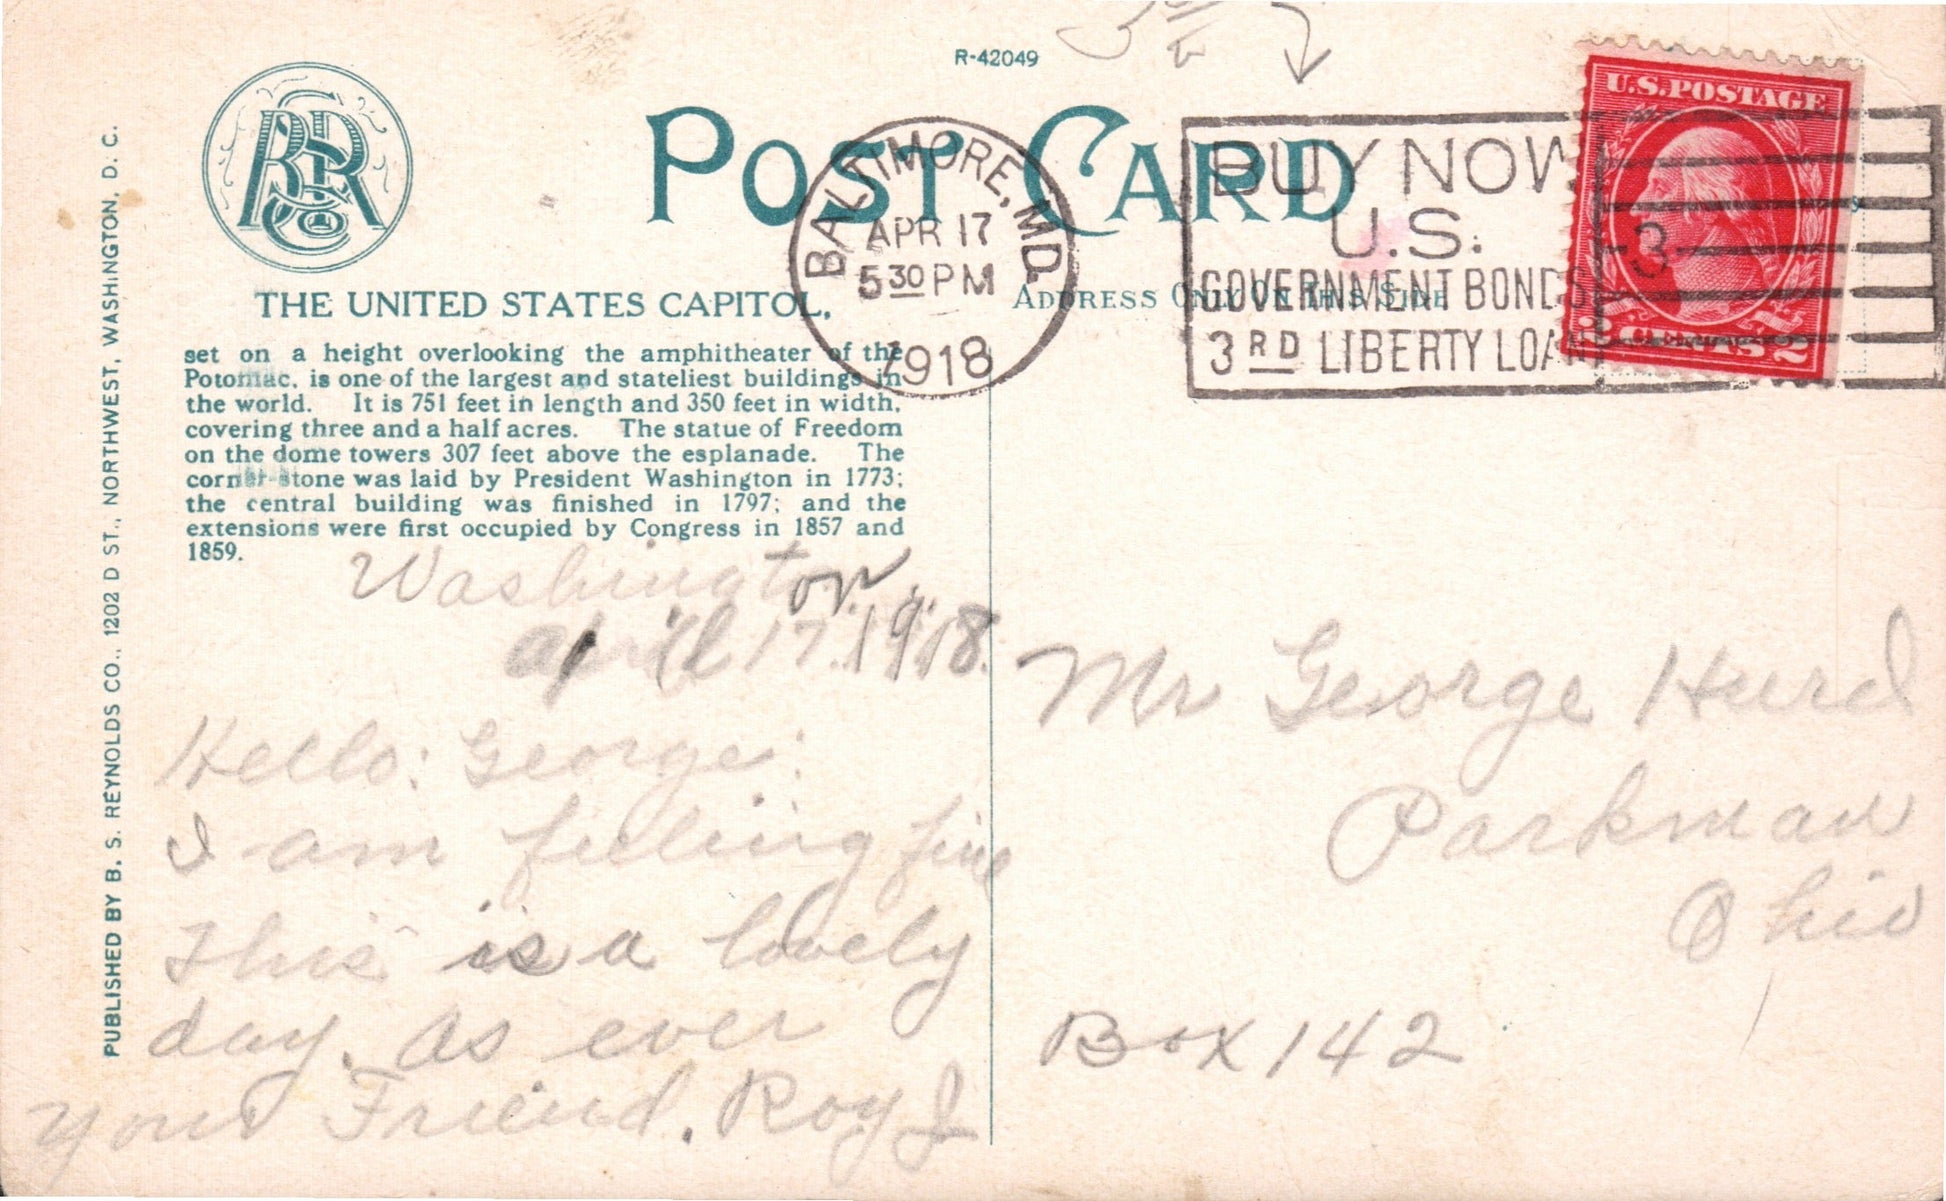 R-42049
BSR Co
POST CARD
BALTIMORE, MD.
APR 17
5 30 PM
1918
BUY NOW
U.S.
GOVERNMENT BONDS
3RD LIBERTY LOAN
3
U.S. POSTAGE
2 CENTS 2
ADDRESS ONLY ON THIS SIDE
THE UNITED STATES CAPITOL,
set on a height overlooking the amphitheater of the
Potomac, is one of the largest and stateliest buildings in
the world. It is 751 feet in length and 350 feet in width,
covering three and a half acres. The statue of Freedom
on the dome towers 307 feet above the esplanade. The
corner-stone was laid by President Washington in 1773;
the central building was finished in 1797; and the
extensions were first occupied by Congress in 1857 and
1859.
PUBLISHED BY B. S. REYNOLDS CO., 1202 D ST., NORTHWEST, WASHINGTON, D. C.
Washington.
april 17. 1918.
Hello: George:
I am feeling fine
This is a lovely
day. as ever
your Friend. Roy J
Mr George Hurd
Parkman
Ohio
Box 142